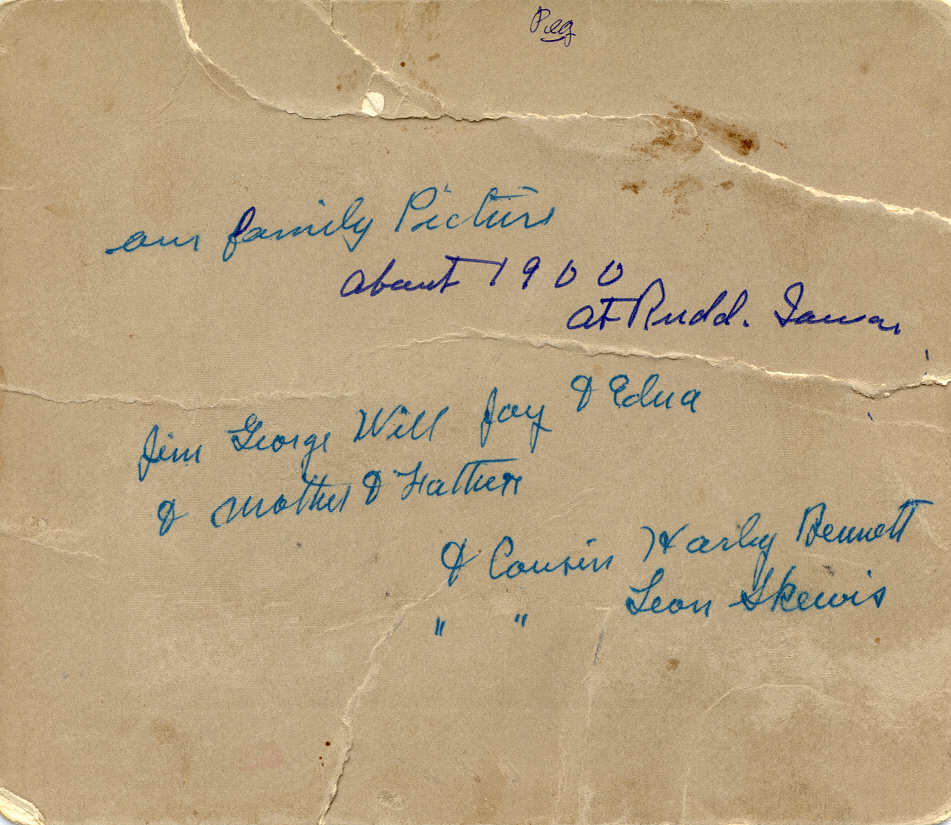 Peg
our family Picture
about 1900
at Rudd. Iowa
Jim George Will Jay & Edna
& Mother & Father
& Cousin Harley Bennett
" " Leon Skewis